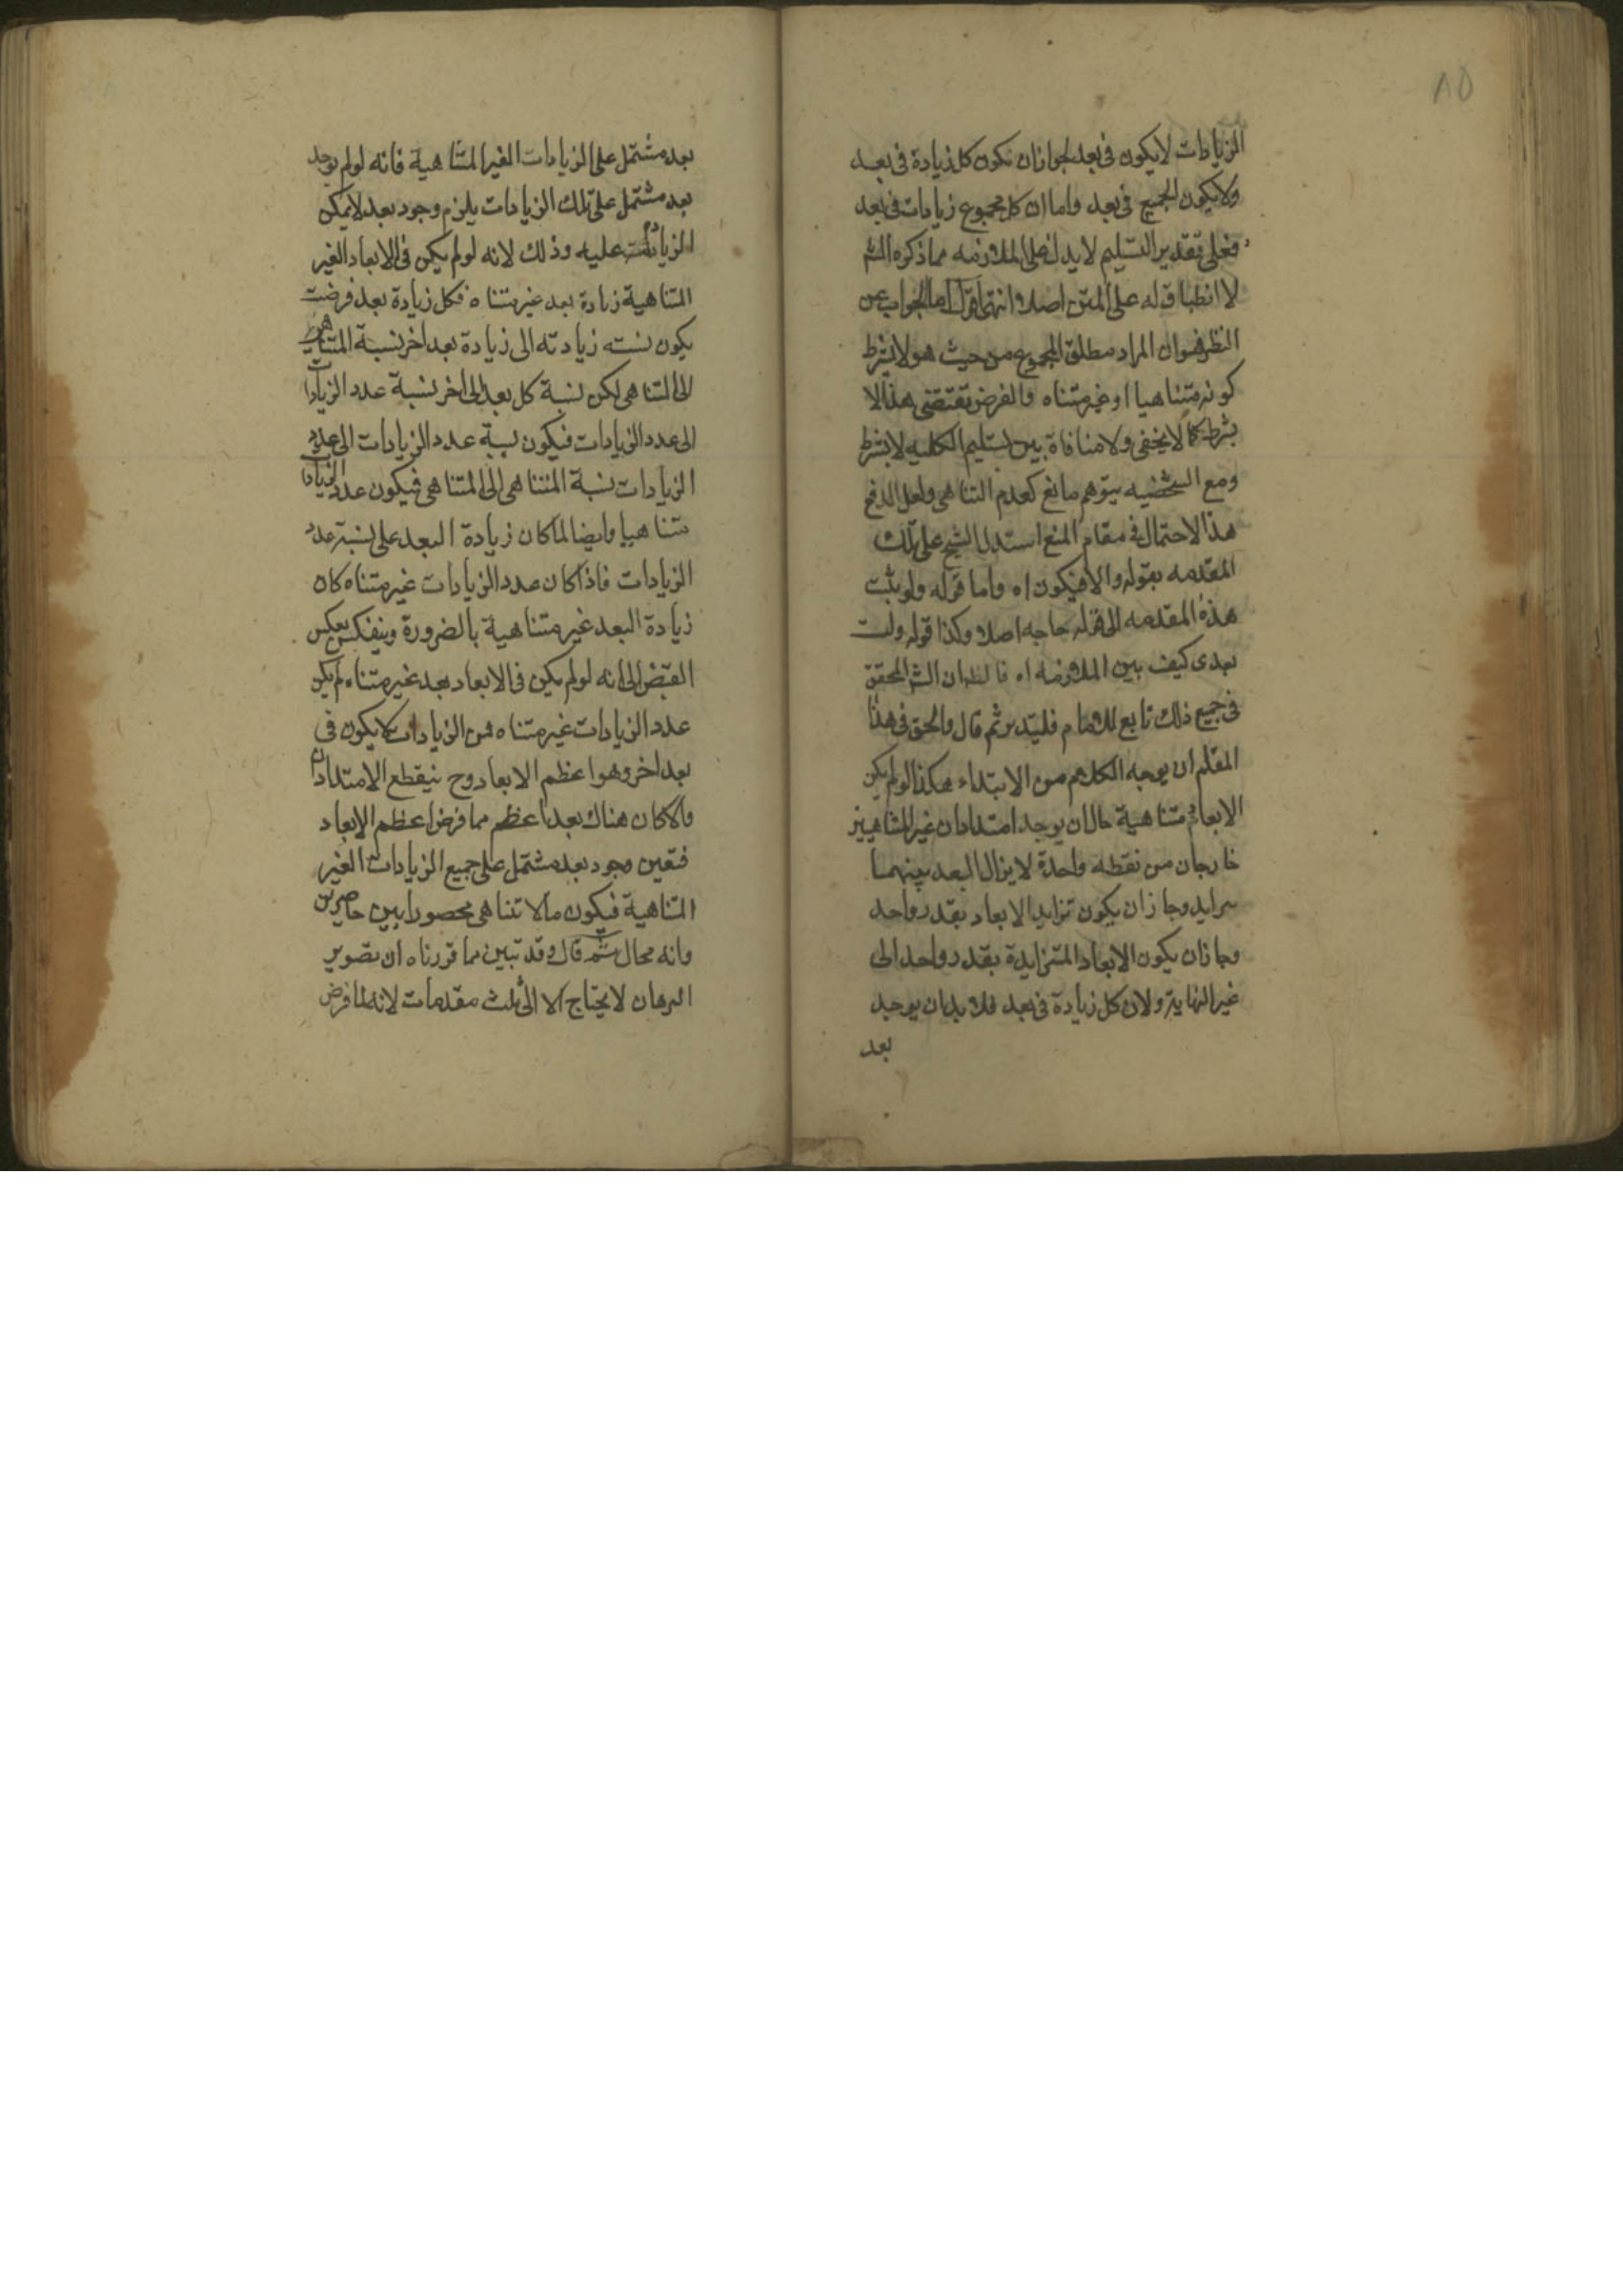 ٨٥
الزيادات لا يكون في بعد لجواز ان تكون كل زيادة في بعد
ولا يكون الجميع في بعد واما ان كل مجموع زيادات في بعد
فعلى تقدير التسليم لا يدل على الملازمه مما ذكره الش
لا انطباق له على المتن اصلا انتهى اقول اما الجواب عن
النظر فهو ان المراد مطلق المجموع من حيث هو لا بشرط
كونه متناهيا او غير متناه والفرض تقتضي هذا لا
بشرط كما لا يخفى ولا منافاة بين تسليم الكليه لا بشرط
ومع الشخصيه يتوهم مانع كعدم التناهي ولعل الدفع
هذا الاحتمال في مقام المنع استدل الشيخ على تلك
المقدمه بقوله والا فيكون اه واما قوله ولو يثبت
هذه المقدمه الى قوله حاجه اصلا وكذا قوله وليت
بعدى كيف بين الملازمه اه فالظ ان الش المحقق
في جميع ذلك تابع للامام فليتدبر ثم قال والحق في هذا
المقام ان يوجه الكلام من الابتداء هكذا لو لم يكن
الابعاد متناهية جاز ان يوجد امتدادان غير المتناهيين
خارجان من نقطه واحدة لا يزال البعد بينهما
يتزايد وجاز ان يكون تزايد الابعاد بقدر واحد
وجاز ان يكون الابعاد المتزايدة بقدر واحد الى
غير النهاية ولان كل زيادة في بعد فلا بد ان يوجد
بعد
بعد مشتمل على الزيادات الغير المتناهية فانه لو لم يوجد
بعد مشتمل على تلك الزيادات يلزم وجود بعد لا يمكن
الزيادة عليه وذلك لانه لو لم يكن في الابعاد الغير
المتناهية زيادة بعد غير متناه فكل زيادة بعد فرضت
يكون نسبه زيادته الى زيادة بعد اخر نسبة المتناهي
الى المتناهي لكن نسبة كل بعد الى اخر نسبة عدد الزيادات
الى عدد الزيادات فيكون نسبة عدد الزيادات الى عدد
الزيادات نسبة المتناهي الى المتناهي فيكون عدد الزيادات
متناهيا وايضا لما كان زيادة البعد على نسبة عدد
الزيادات فاذا كان عدد الزيادات غير متناه كان
زيادة البعد غير متناهية بالضرورة وينعكس بعكس
النقيض الى انه لو لم يكن في الابعاد بعد غير متناه لم يكن
عدد الزيادات غير متناه فمن الزيادات ما لا يكون في
بعد اخر وهو اعظم الابعاد وح ينقطع الامتدادان
والا كان هناك بعد اعظم مما فرض اعظم الابعاد
فتعين وجود بعد مشتمل على جميع الزيادات الغير
المتناهية فيكون ما لا تتناهي محصورا بين حاصرين
وانه محال ثم قال وقد تبين مما قررناه ان تصوير
البرهان لا يحتاج الا الى ثلث مقدمات لانه لما فرض